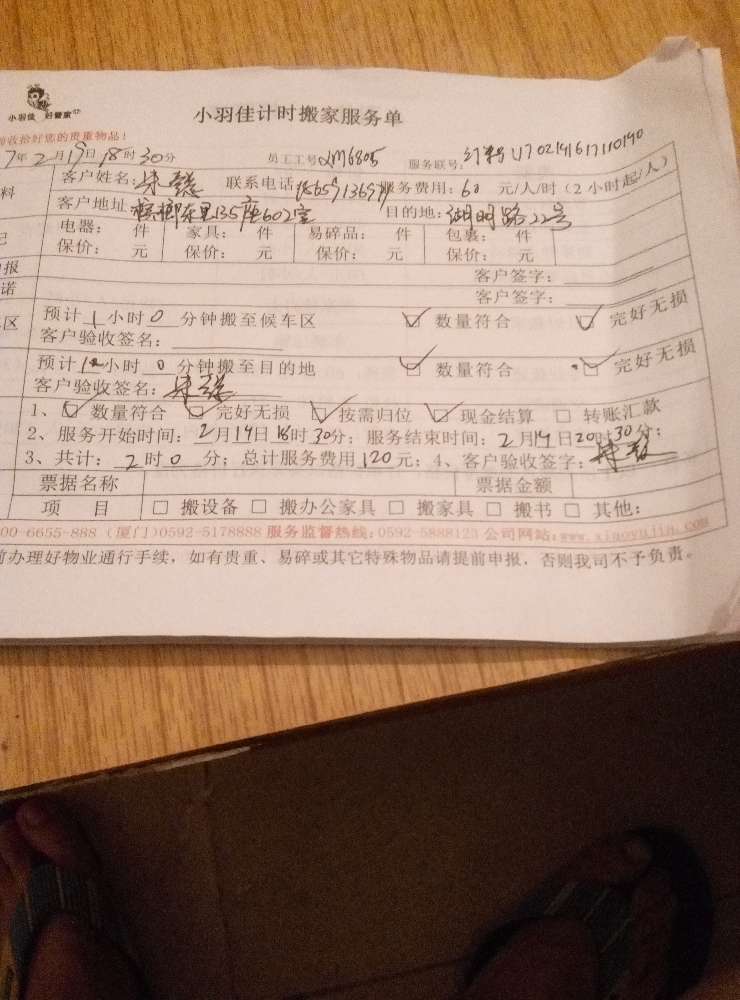 小羽佳 好管家
小羽佳计时搬家服务单
收拾好您的贵重物品!
7年2月19日18时30分 员工工号XM6805 服务联号: 订单号U702141617110190
料 客户姓名: 宋 联系电话 服务费用: 60 元/人/时(2小时起/人)
客户地址: 东里135座602室 目的地: 湖明路22号
记 电器: 件 家具: 件 易碎品: 件 包裹: 件
保价: 元 保价: 元 保价: 元 保价: 元
报 客户签字:
诺 客户签字:
区 预计1小时0分钟搬至候车区 ☑ 数量符合 ☑ 完好无损
客户验收签名:
预计1小时0分钟搬至目的地 ☑ 数量符合 ☑ 完好无损
客户验收签名: 宋
1、☑ 数量符合 ☑ 完好无损 ☑ 按需归位 ☑ 现金结算 □ 转账汇款
2、服务开始时间: 2月19日18时30分; 服务结束时间: 2月19日20时30分;
3、共计: 2时0分; 总计服务费用120元; 4、客户验收签字:
票据名称 票据金额
项 目 □ 搬设备 □ 搬办公家具 □ 搬家具 □ 搬书 □ 其他:
00-6655-888 (厦门)0592-5178888 服务监督热线: 0592-5888123 公司网站: www.xiaoyujia.com
前办理好物业通行手续,如有贵重、易碎或其它特殊物品请提前申报,否则我司不予负责。